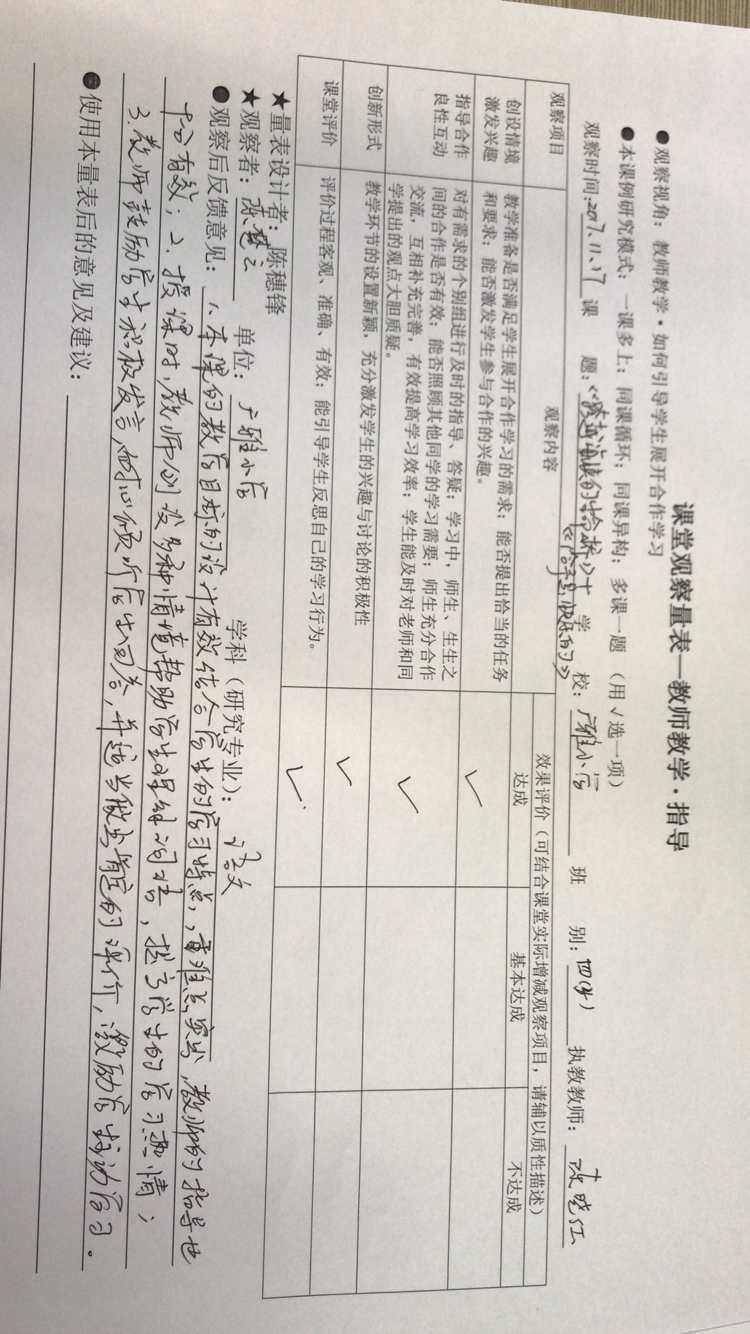 课堂观察量表—教师教学·指导
●观察视角：教师教学·如何引导学生展开合作学习
●本课例研究模式：一课多上；同课循环；同课异构；多课一题（用√选一项）
观察时间:2017.11.17 课 题:《跨越海峡的生命桥》+ 学 校:广雅小学 班 别:四(4) 执教教师:
快乐的》
观察项目 观察内容 效果评价（可结合课堂实际增减观察项目，请辅以质性描述）
达成 基本达成 不达成
创设情境 激发兴趣 教学准备是否满足学生展开合作学习的需求；能否提出恰当的任务
和要求；能否激发学生参与合作的兴趣。 ✓
指导合作 良性互动 对有需求的个别组进行及时的指导、答疑；学习中，师生、生生之
间的合作是否有效；能否照顾其他同学的学习需要；师生充分合作
交流，互相补充完善，有效提高学习效率；学生能及时对老师和同
学提出的观点大胆质疑。 ✓
创新形式 教学环节的设置新颖，充分激发学生的兴趣与讨论的积极性 ✓
课堂评价 评价过程客观、准确、有效；能引导学生反思自己的学习行为。 ✓
★量表设计者：陈穗锋
★观察者：陈楚云 单位：广雅小学 学科（研究专业）：语文
●观察后反馈意见：1、本课的教学目标的设计有效结合学生的学习特点，重难点突出，教师的指导也
十分有效；2、授课时，教师创设多种情境帮助学生理解词语，提高学生的学习热情；
3、教师鼓励学生积极发言，耐心倾听学生回答，并适当做出肯定的评价，激励学生主动学习。
●使用本量表后的意见及建议：